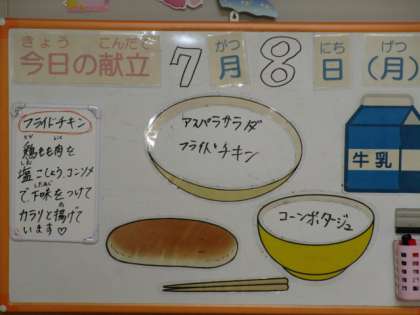 きょう こんだて
今日の献立
7 月 8 日 (月)
がつ にち げつ
フライドチキン
鶏もも肉を
塩こしょう、コンソメ
で下味をつけて
カラリと揚げて
います♡
アスパラサラダ
フライドチキン
牛乳
コーンポタージュ